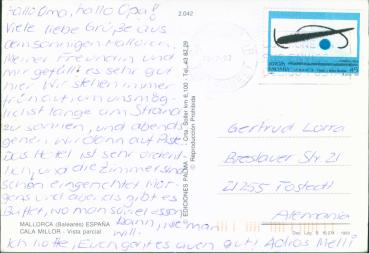 Hallo Oma, hallo Opa!
Viele liebe Grüße aus
dem sonnigen Mallorca.
Meiner Freundin und
mir gefällt es sehr gut
hier. Wir stehen immer
früh auf, um uns mög-
lichst lange am Strand
zu sonnen, und abends
gehen wir dann auf Piste.
Das Hotel ist sehr ordent-
lich, und die Zimmer sind
schön eingerichtet. Mor-
gens und abends gibt es
Buffet, wo man soviel essen
kann, wie man
will.
Ich hoffe, Euch geht es auch gut! Adios Melli
2.042
EDICIONES PALMA
Ctra. Soller km 6,100 - Tel.
© Reproducción Prohibida
MALLORCA (Baleares) ESPAÑA
CALA MILLOR - Vista parcial
Gertrud Lorra
Breslauer Str. 21
21255 Tostedt
Alemania
ESPAÑA